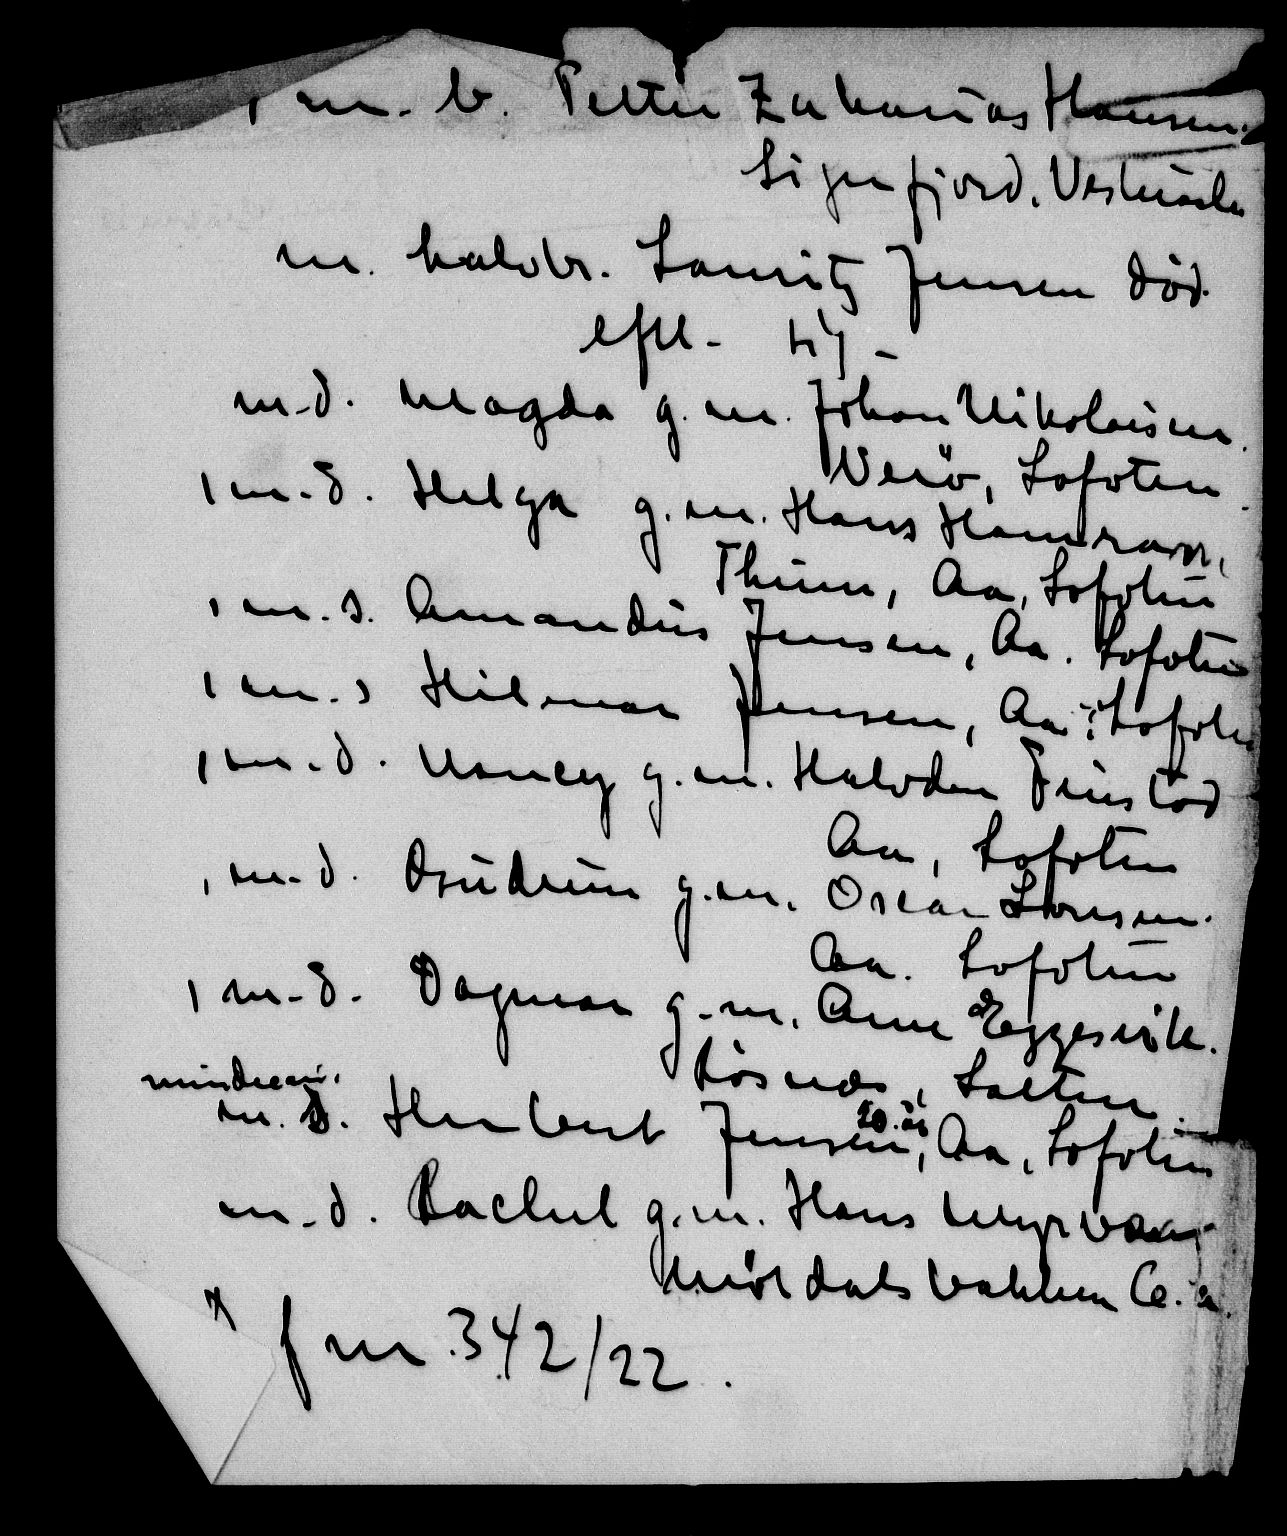 1 m. b. Petter Zakarias Hansen.
Sigerfjord, Vesteraalen
m. halvbr. Lauritz Jensen død.
efterl. sig -
m. d. Magda g. m. Johan Nikolaisen.
Verö, Lofoten
1 m. d. Helga g. m. Hans
Thiim, Aa, Lofoten
1 m. s. Amandus Jensen, Aa. Lofoten
1 m. s Hilmar Jensen, Aa i Lofoten
1 m. d. Nancy g. m. Halvdan Finstad
Aa, Lofoten
1 m. d. Gudrun g. m. Oscar Larsen.
Aa. Lofoten
1 m. d. Dagmar g. m. Arne Eggesvik.
Rösnæs, Salten.
mindreaar.
m. s. Herbert Jensen, 20 aar, Aa, Lofoten
m. d. Rachel g. m. Hans Myrvang
bakken
f m. 342/22.